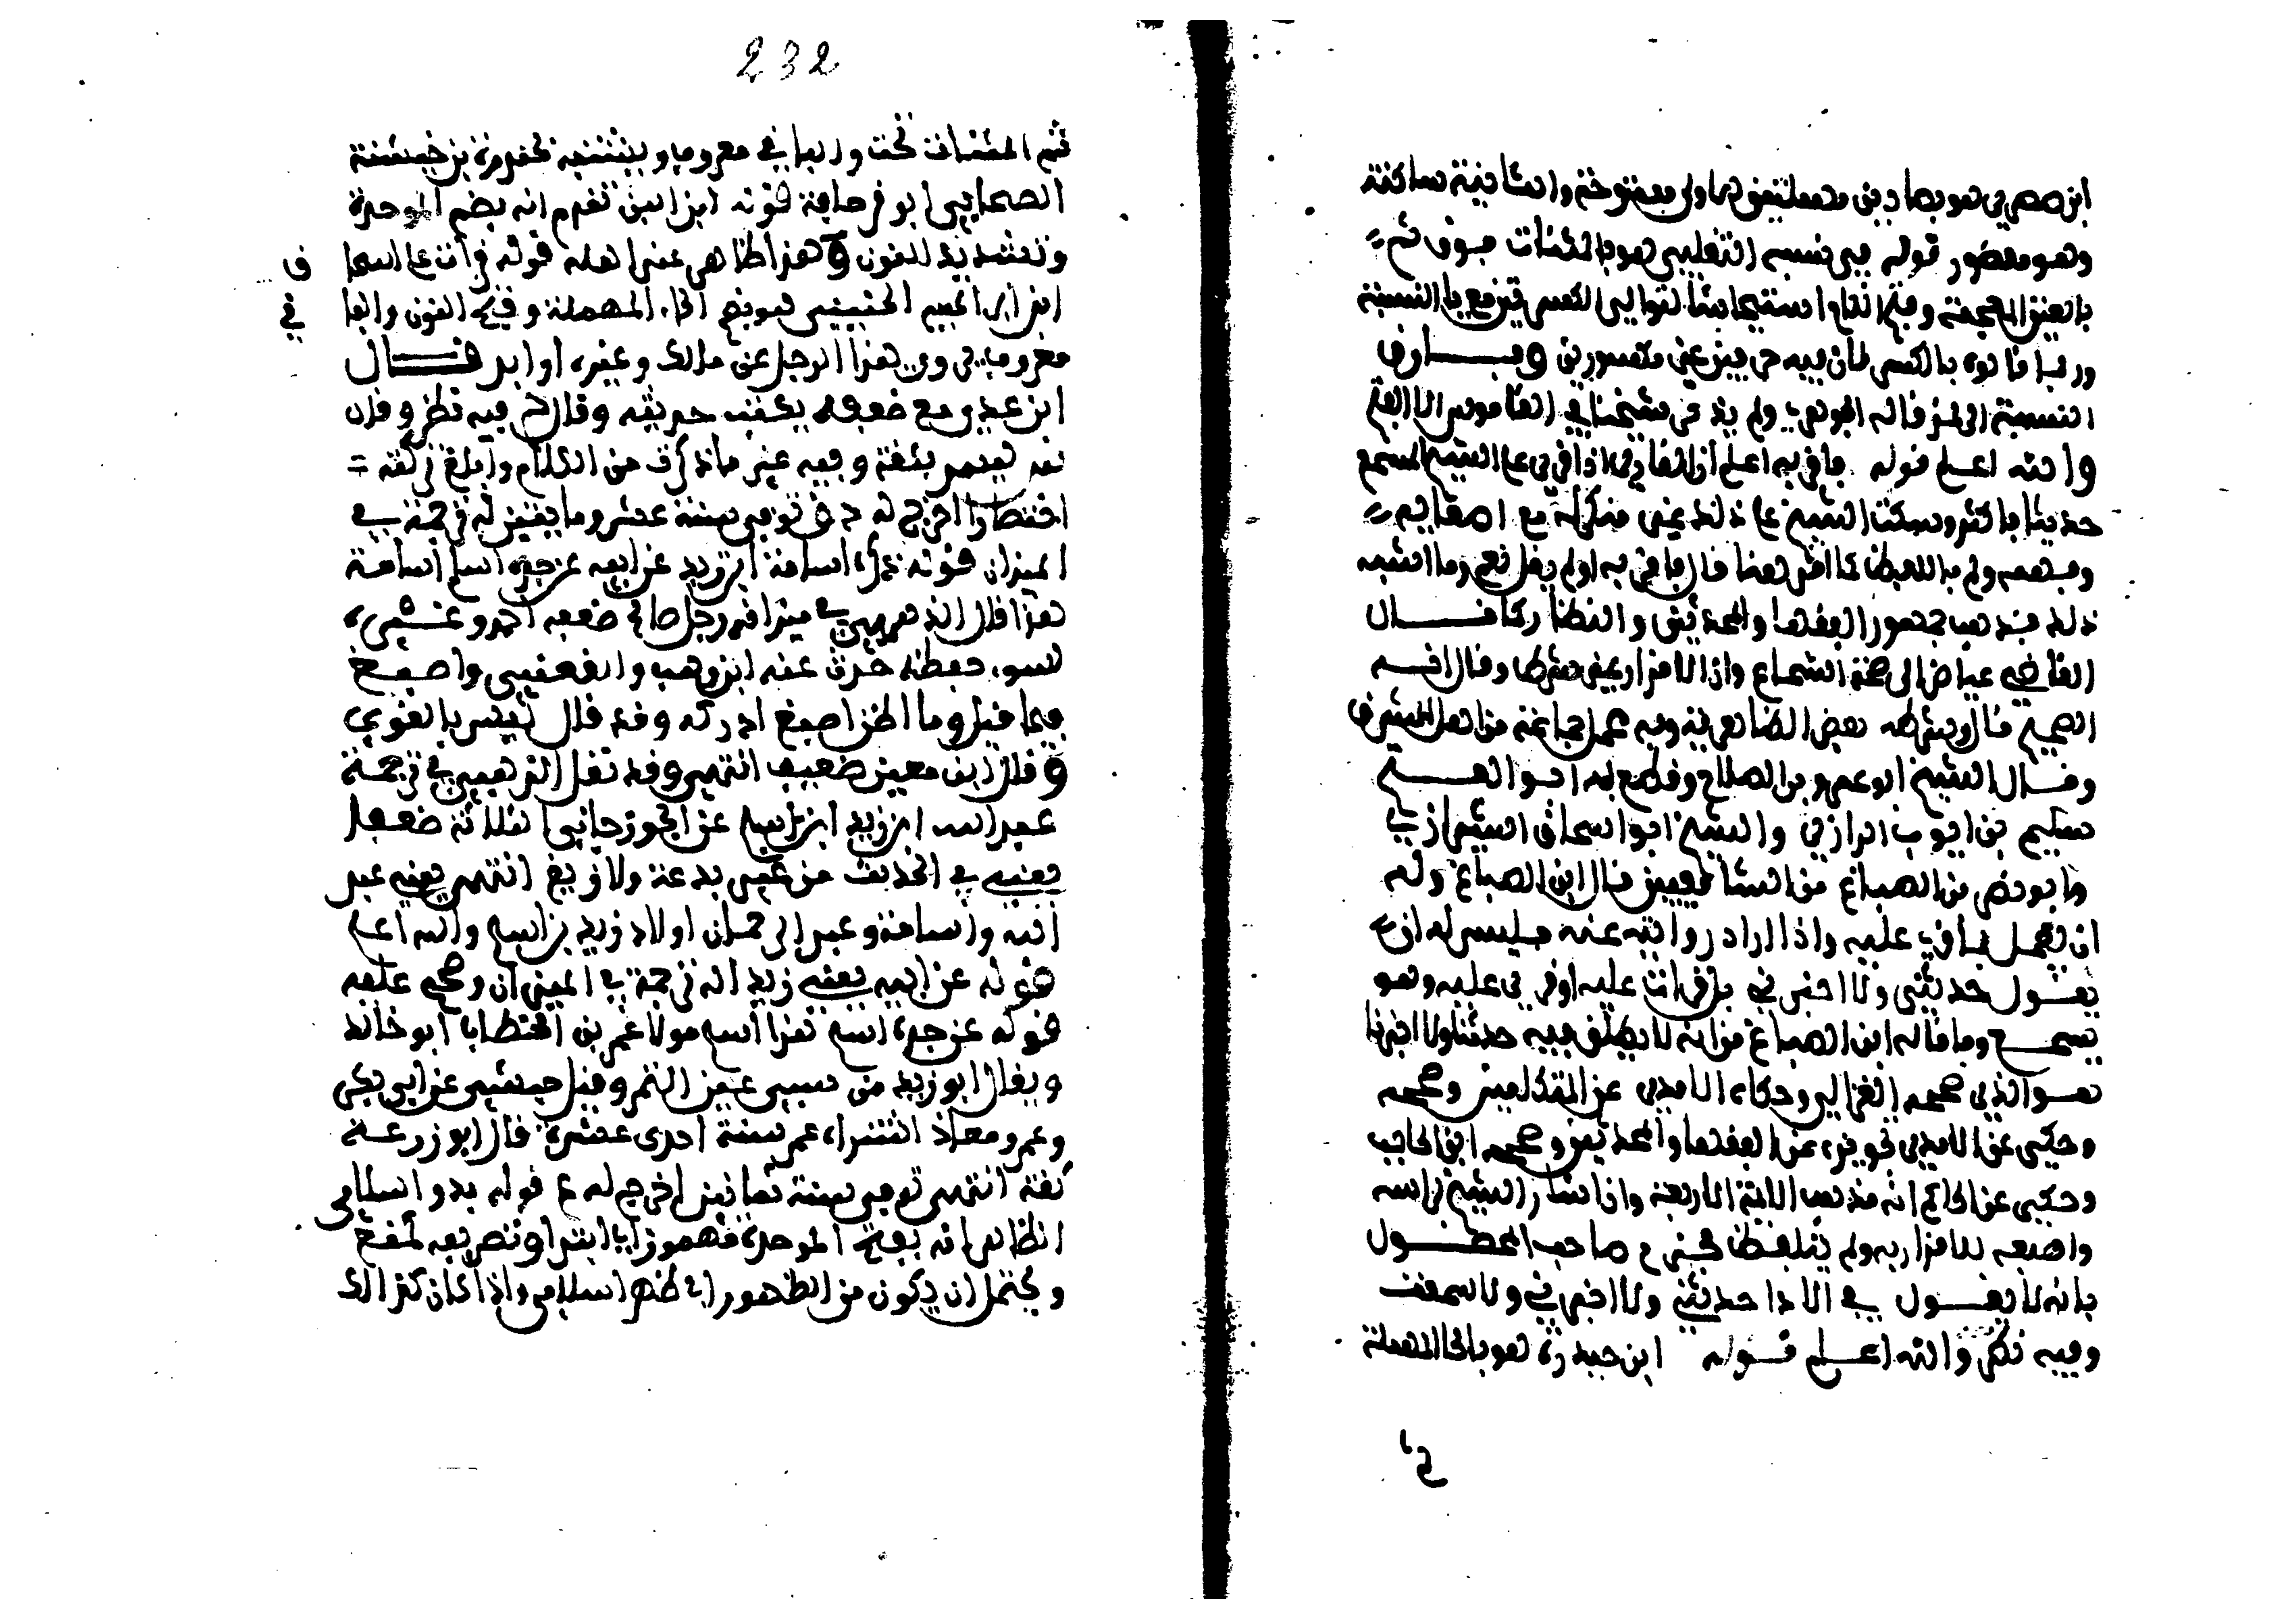 ابن صصرى هو بصادين مهملتين الاولى مفتوحة والثانية ساكنة
وهو مقصور قوله في نسبه التغلبي هو بالمثناة فوق ثم
بالغين المعجمة وفتح اللام استيحاشا لتوالي الكسرتين مع يا النسبة
وربما قالوه بالكسر لان فيه حرفين غير مكسورين وفارق
النسبة الى نمر قاله الجوهري ولم يذكر شيخنا في القاموس الا الفتح
والله اعلم قوله فاقر به اعلم ان القارئ اذا قرى على الشيخ المسمع
حديثا فاكثر وسكت الشيخ على ذلك غير منكر له مع اصغايه
وفهمه ولم باللفظ كما اقر هنا قال فاقر به او لم يقل نعم وما اشبه
ذلك فذهب جمهور الفقها والمحدثين والنظار كما قال
القاضي عياض الى صحة السماع وان الاقرار غير شرط وقال انه
الصحيح قال وشرطه بعض الظاهرية وبه عمل جماعة من اهل المشرق
وقال الشيخ ابو عمرو بن الصلاح وقطع به ابو الفتح
سليم بن ايوب الرازي والشيخ ابو اسحاق الشيرازي
وابو نصر بن الصباغ من الشافعيين قال ابن الصباغ وله
ان يعمل بما قرى عليه واذا اراد روايته عنه فليس له ان
يقول حدثني ولا اخبرني بل قرات عليه او قرى عليه وهو
يسمع وما قاله ابن الصباغ من انه لا يطلق فيه حدثنا ولا اخبرنا
هو الذي صححه الغزالي وحكاه الامدي عن المتكلمين وصححه
وحكى عن الامدي تجويزه عن الفقها والمحدثين وصححه ابن الحاجب
وحكى عن الحاكم انه مذهب الايمة الاربعة وان اشار الشيخ براسه
واصبعه للاقرار به ولم يتلفظ فجزم صاحب المحصول
بانه لا يقول في الادا حدثني ولا اخبرني ولا سمعت
وفيه نظر والله اعلم قوله ابن حيدرة هو بالحا المهملة
232
ثم المثناة تحت والباقي معروف ويشتبه بخندرة بن خيشنة
الصحابي ابو قرصافة قوله ابن البن تقدم انه بضم الموحدة
وتشديد النون وهذا ظاهر عند اهله قوله قرات على اسحا
ابن ابراهيم الحنيني هو بضم الحاء المهملة وفتح النون والبا
في
معروف روى هذا الرجل عن مالك وغيره اوابد قال
ابن عدي مع ضعفه يكتب حديثه وقال خ فيه نظر وقال
نه ليس بثقة وفيه غير ما ذكرت من الكلام وابلغ ذكرته
اختصارا اخرج له د ق توفي سنة عشر ومايتين له ترجمة في
الميزان قوله ذكره اسامة ابن زيد عن ابيه عن جده اسلم اسامة
هذا قال الذهبي في ميزانه رجل صالح ضعفه احمد وغيره
لسوء حفظه حدث عنه ابن وهب والقعنبي واصبغ
فيما قيل وما اظن اصبغ ادركه وقد قال ليس بالقوي
وقال ابن معين ضعيف انتهى وقد نقل الذهبي في ترجمة
عبد الله ابن زيد ابن اسلم عن الجوزجاني ثلاثة ضعفا
يعني في الحديث من غير بدعة ولا زيغ انتهى يعني عبد
الله واسامة وعبد الرحمان اولاد زيد بن اسلم والله اعلم
قوله عن ابيه يعني زيد اله ترجمة في الميزان وصحح عليه
قوله عن جده اسلم هذا اسلم مولا عمر بن الخطاب ابو خالد
ويقال ابو زيد من سبي عين التمر وقيل حبشي عن ابي بكر
وعمر ومعاذ اشتراه عمر سنة احدى عشرة قال ابو زرعة
ثقة انتهى توفي سنة ثمانين اخرج له ع قوله بدو اسلامي
الظاهر انه بفتح الموحدة مهموز اي ابتدا وتصريفه كمنع
ويحتمل ان يكون من الظهور اي ظهر اسلامي واذا كان كذالك